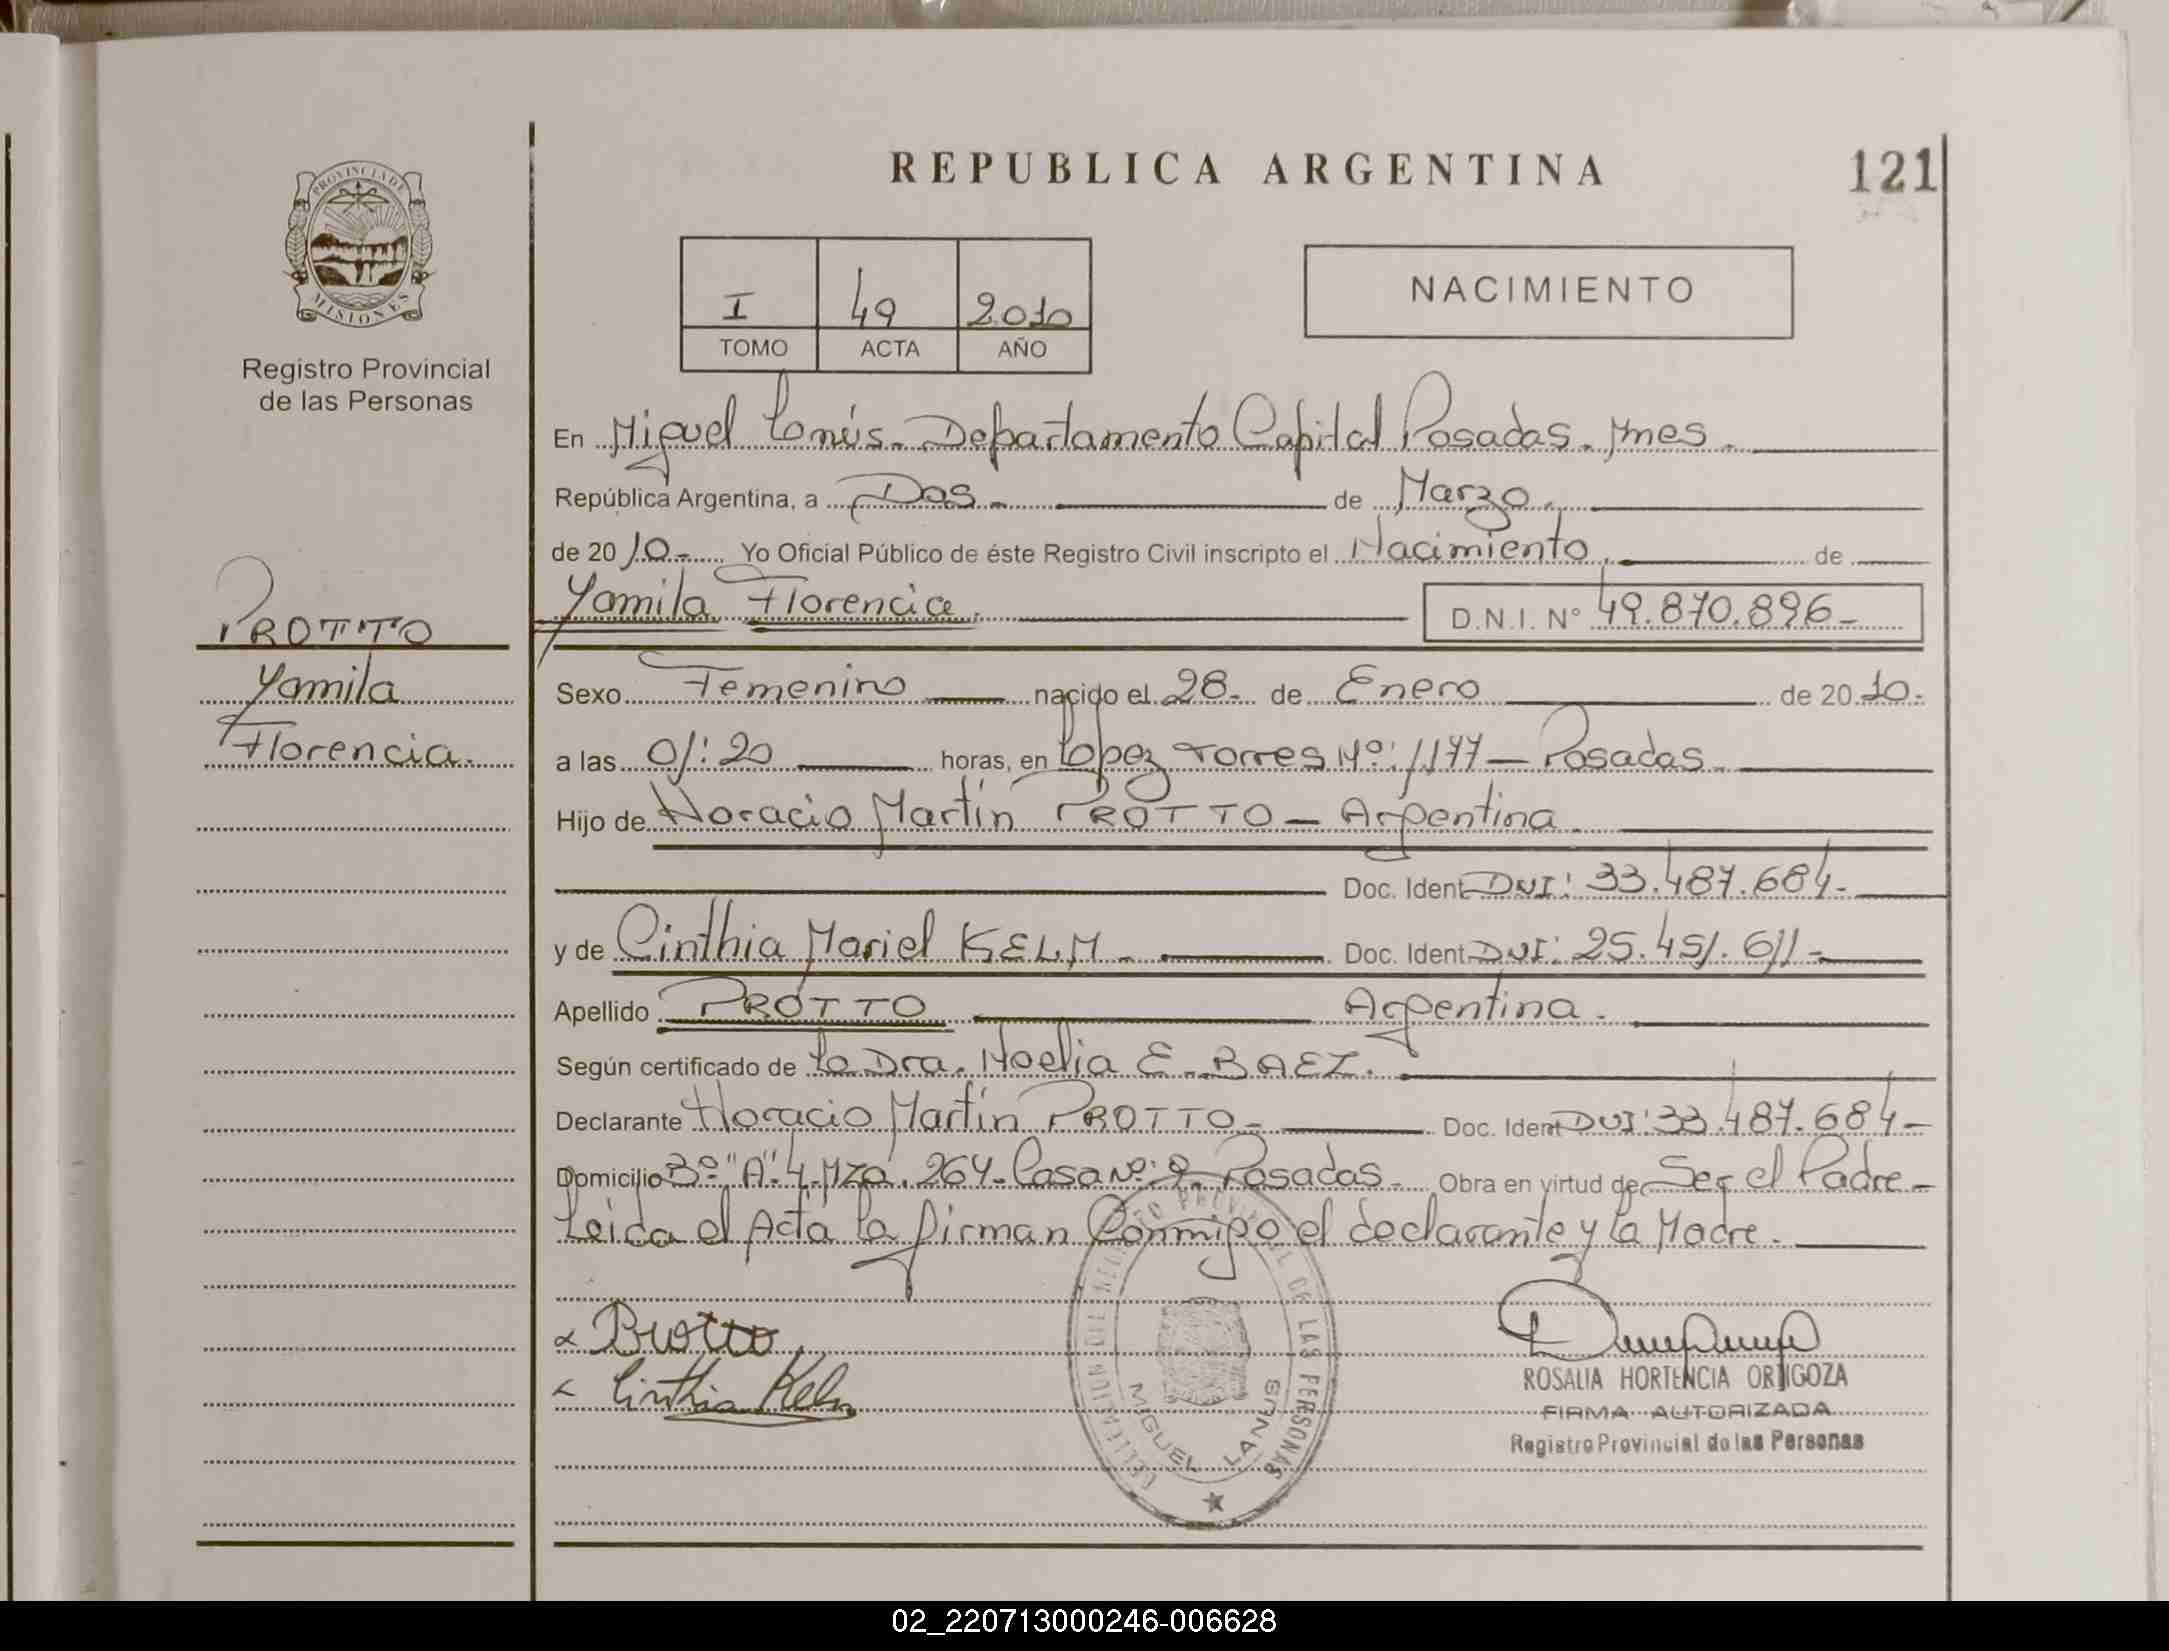 REPUBLICA ARGENTINA
121
PROVINCIA DE
MISIONES
Registro Provincial
de las Personas
I 49 2010
TOMO ACTA AÑO
NACIMIENTO
En Miguel Lanús. Departamento Capital Posadas. Mnes.
República Argentina, a Dos. de Marzo.
de 2010.- Yo Oficial Público de éste Registro Civil inscripto el Nacimiento. de
Yamila Florencia. D.N.I. N° 49.870.896-
PROTTO
Yamila
Florencia.
Sexo Femenino nacido el 28. de Enero de 2010.
a las 01:20 horas, en López Torres Nº: 1177 - Posadas.
Hijo de Horacio Martín PROTTO - Argentina
Doc. Ident. DNI: 33.487.684.-
y de Cinthia Mariel KELM. Doc. Ident. DNI: 25.451.611-
Apellido PROTTO Argentina.
Según certificado de la Dra. Noelia E. BAEZ.
Declarante Horacio Martín PROTTO- Doc. Ident DNI: 33.487.684-
Domicilio Bº "A" 4. Mza. 264. Casa Nº: 9. Posadas. Obra en virtud de Ser el Padre-
Leida el Acta la firman Conmigo el declarante y la Madre.
Protto
Cinthia Kelm
REGISTRO PROVINCIAL DE LAS PERSONAS
MIGUEL LANUS
ROSALIA HORTENCIA ORTIGOZA
FIRMA AUTORIZADA
Registro Provincial de las Personas
02_220713000246-006628